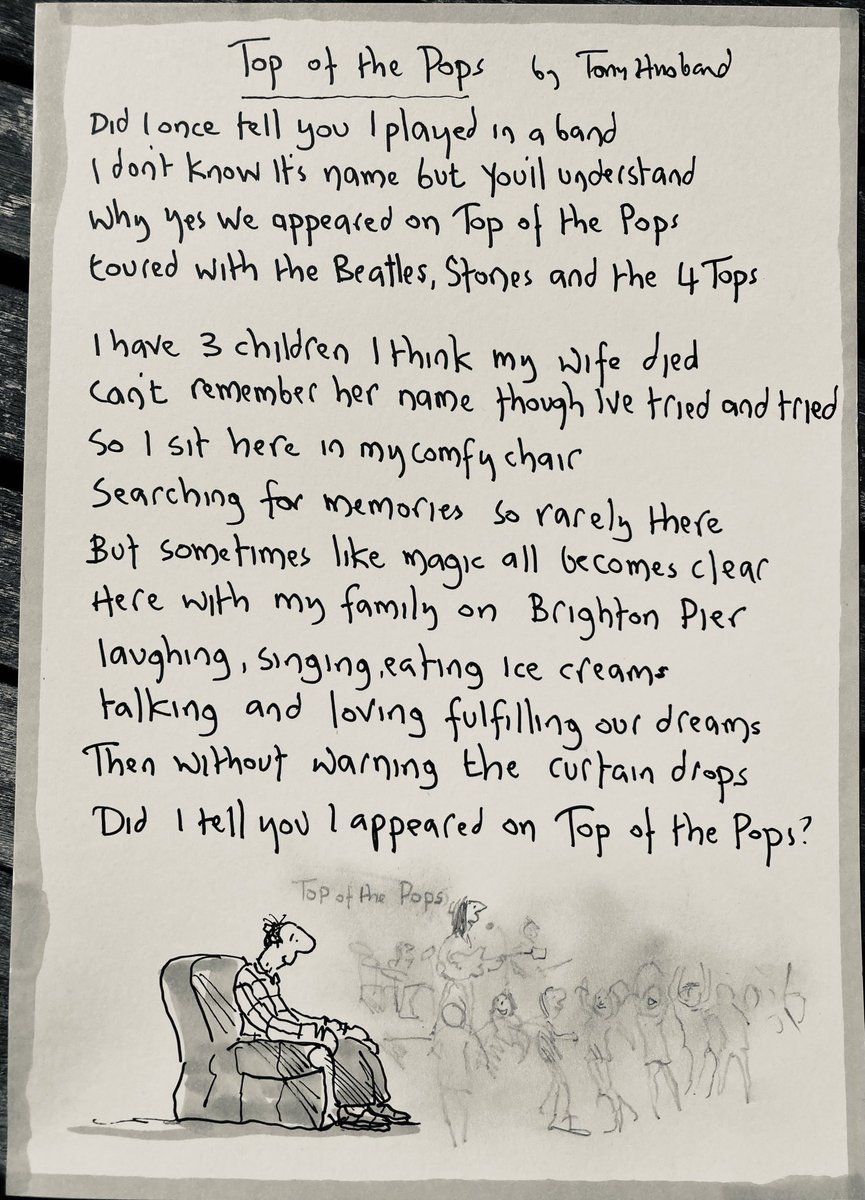 Top of the Pops by Tony Husband
Did I once tell you I played in a band
I don't know It's name but you'll understand
Why yes we appeared on Top of the Pops
toured with the Beatles, Stones and the 4 Tops
I have 3 children I think my wife died
can't remember her name though I've tried and tried
So I sit here in my comfy chair
Searching for memories so rarely there
But sometimes like magic all becomes clear
Here with my family on Brighton Pier
laughing, singing, eating ice creams
talking and loving fulfilling our dreams
Then without warning the curtain drops
Did I tell you I appeared on Top of the Pops?
Top of the Pops